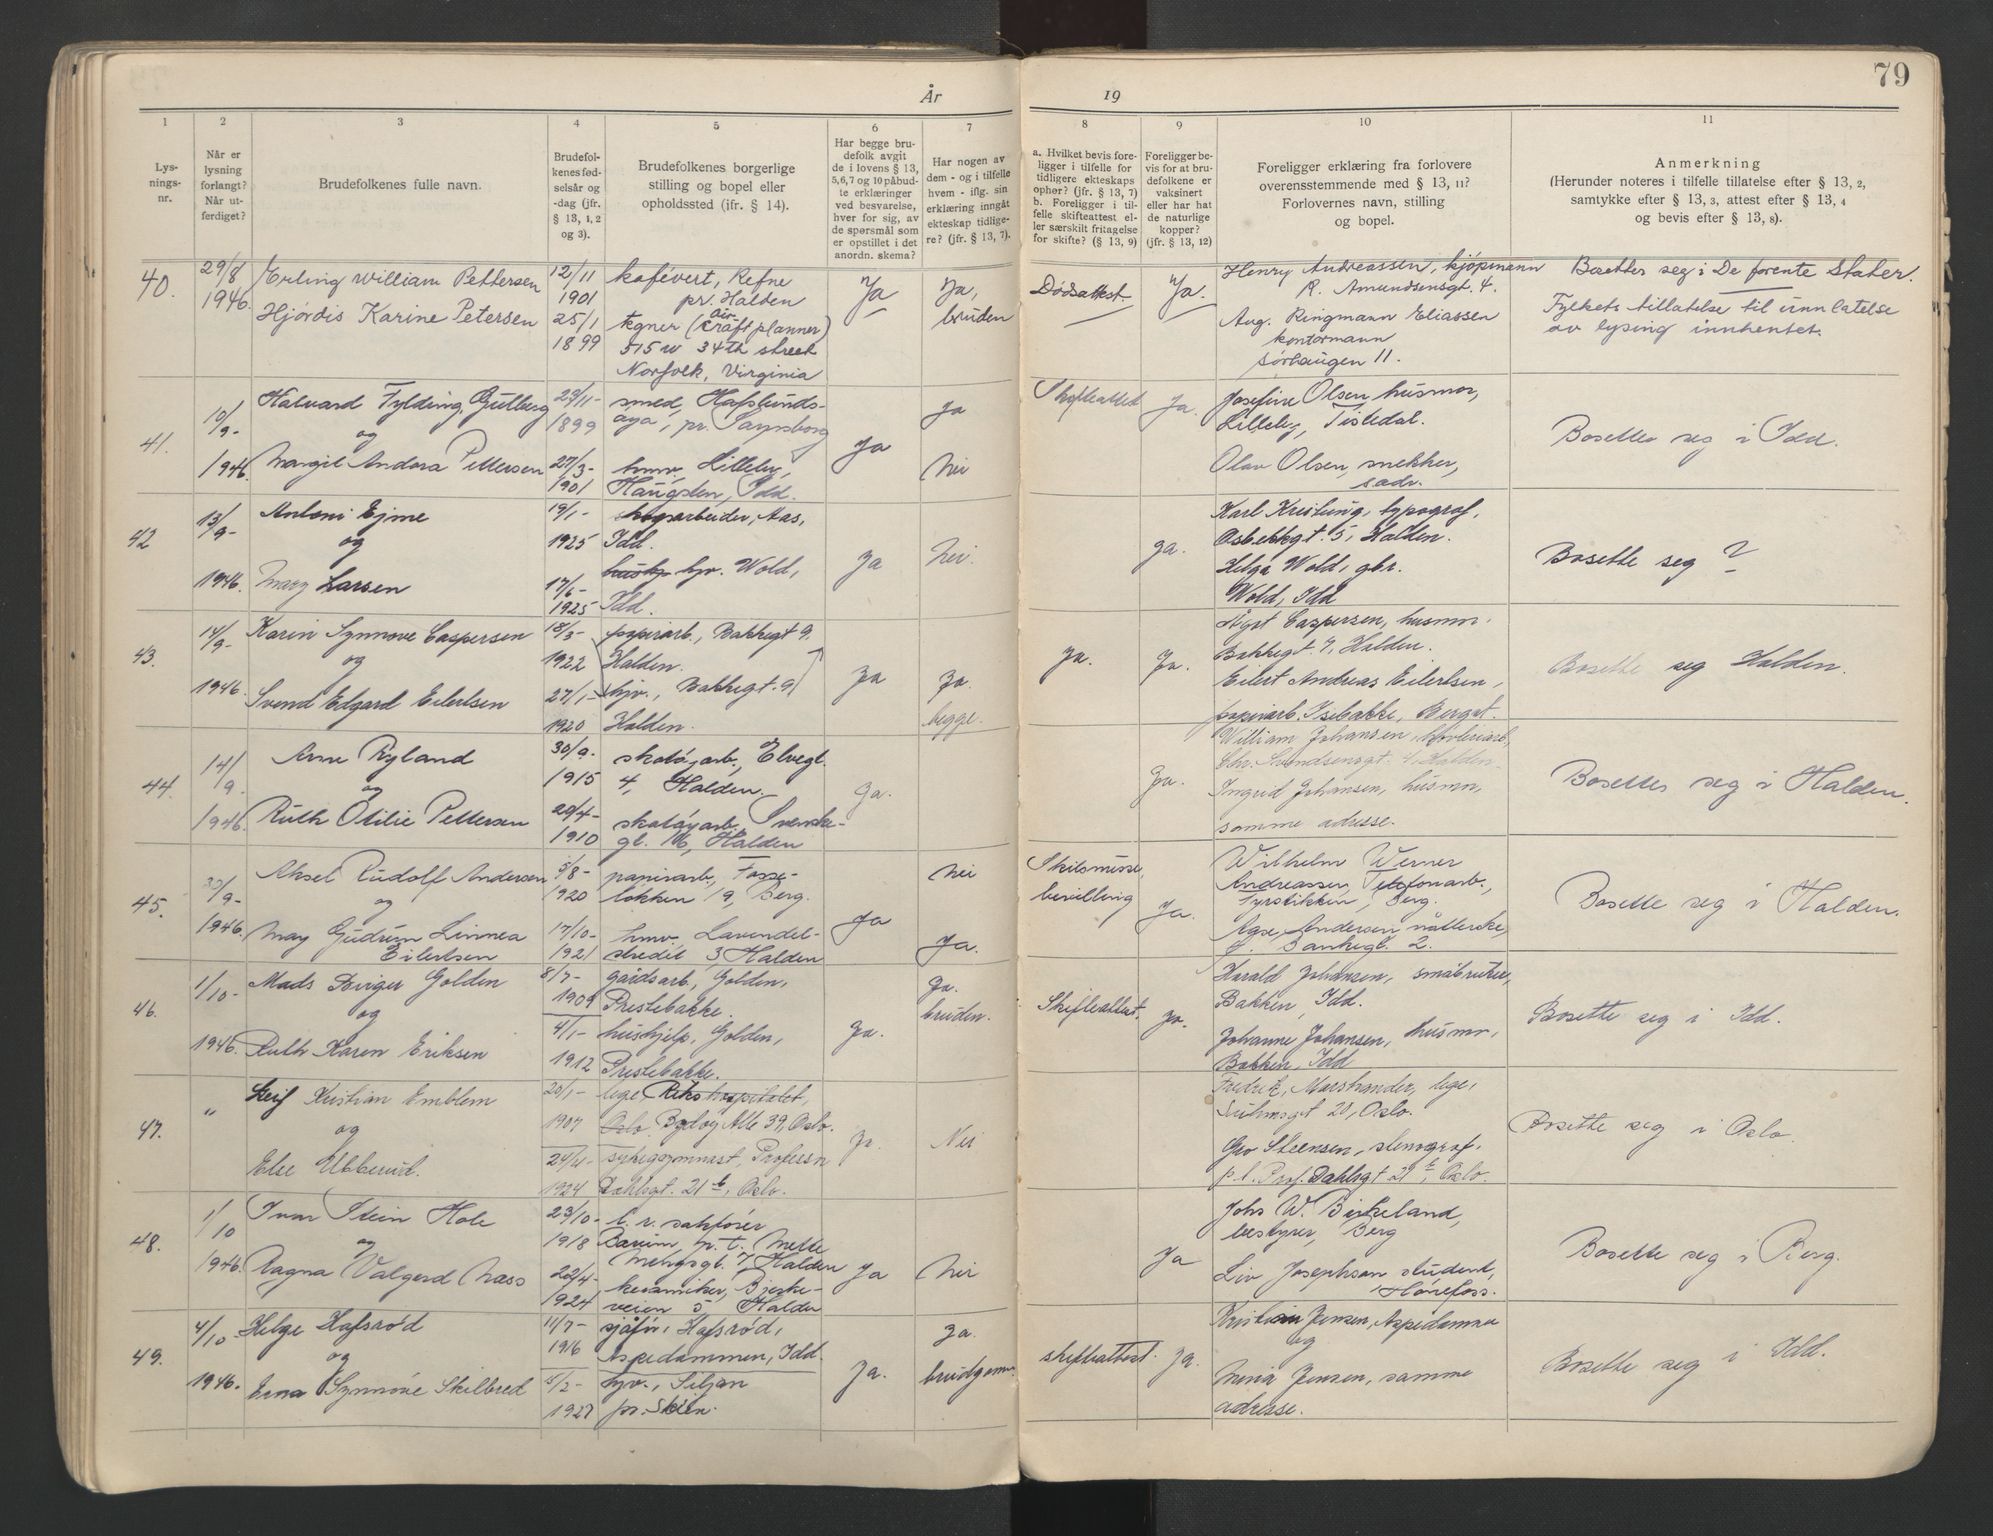 79
År 19
1 2 3 4 5 6 7 8 9 10 11
Lysningsnr.
Når er lysning forlangt? Når utferdiget?
Brudefolkenes fulle navn.
Brudefolkenes fødselsår og -dag (jfr. § 13, 1, 2 og 3).
Brudefolkenes borgerlige stilling og bopel eller opholdssted (jfr. § 14).
Har begge brudefolk avgit de i lovens § 13, 5,6,7 og 10 påbudte erklæringer ved besvarelse, hver for sig, av de spørsmål som er opstillet i det anordn. skema?
Har nogen av dem - og i tilfelle hvem - iflg. sin erklæring inngått ekteskap tidligere? (jfr. § 13, 7).
a. Hvilket bevis foreligger i tilfelle for tidligere ekteskaps ophør? (jfr. § 13, 7)
b. Foreligger i tilfelle skifteattest eller særskilt fritagelse for skifte? (§ 13, 9)
Foreligger bevis for at brudefolkene er vaksinert eller har hat de naturlige kopper? (jfr. § 13, 12)
Foreligger erklæring fra forlovere overensstemmende med § 13, 11? Forlovernes navn, stilling og bopel.
Anmerkning
(Herunder noteres i tilfelle tillatelse efter § 13, 2, samtykke efter § 13, 3, attest efter § 13, 4 og bevis efter § 13, 8).
40. 29/8 1946
Erling William Pettersen 12/11 1901 kafévert, Refne pr. Halden
Hjørdis Karine Petersen 25/1 1899 tegner (aircraft planner) 515 w 34th street Norfolk, Virginia
Ja Ja, bruden
Dødsattest Ja.
Henry Andreassen, kjøpmann
R. Amundsensgt. 4.
Aug. Ringmann Eliassen
kontormann
Sørhaugen 11.
Bosetter seg i De forente Stater.
Fylkets tillatelse til unnlatelse
av lysing innhentet.
41. 10/9- 1946.
Halvard Fylding Gulberg 23/11- 1899 smed, Hafslundsøya, pr. Sarpsborg
og
Margit Andora Pettersen 27/3- 1901 hmv, Lilleby, Haugsten, Idd.
Ja Ja Nei
Skifteattest Ja.
Josefine Olsen, husmor,
Lilleby, Tistedal.
Olav Olsen, snekker,
sadr.
Bosetter seg i Idd.
42 13/9- 1946.
Antoni Ejme 19/1- 1925 skogsarbeider, Aas, Idd.
og
Mary Larsen 17/6- 1925 hjv. Wold, Idd.
Ja Nei.
Ja.
Karl Kristung, typograf,
Osbekkgt. 5, Halden.
Helga Wold, gbr.
Wold, Idd
Bosette seg ?
43. 14/9- 1946.
Karin Synnøve Caspersen 18/3- 1922 papirarb., Bakkegt 9, Halden.
og
Svend Edgard Eilertsen 27/1- 1920 hjv., Bakkegt. 9, Halden.
Ja Ja. begge.
Ja. Ja.
Caspersen, husmor.
Bakkegt 9, Halden.
Eilert Andreas Eilertsen,
papirarb. Isebakke, Berg st.
Bosette seg Halden.
44. 14/9. 1946.
Arne Ryland 30/9- 1915 skotøyarb., Elvegt. 4, Halden.
og
Ruth Otilie Pettersen 29/4- 1910 skotøyarb. Svenskegt. 16, Halden
Ja.
Ja.
William Johansen,
Chr. Svendsensgt. 4, Halden.
Ingrid Johansen, husmor,
samme adresse.
Bosetter seg i Halden.
45. 30/9- 1946.
Aksel Rudolf Andersen 5/8- 1920 papirarb., Fosseløkken 19, Berg.
og
May Gudrun Linnea Eilertsen 17/10- 1921 hmv, Lavendelstredet 3 Halden
Ja Nei Ja.
Skilsmissebevilling Ja.
Wilhelm Werner
Andreassen, Telefonarb.,
Fyrstikken, Berg.
Andersen
2.
Bosette seg i Halden.
46. 1/10- 1946.
Mads Birger Golden 8/7- 1909 gårdsarb, Golden, Prestebakke.
og
Ruth Karen Eriksen 4/1- 1912 hushjelp, Golden, Prestebakke.
Ja. Ja. bruden.
Skifteattest. Ja.
Harald Johansen, småbruker,
Bakken, Idd.
Johanne Johansen, husmor,
Bakken, Idd
Bosette seg i Idd.
47. "
Leif Kristian Emblem 20/1- 1907 lege Rikshospitalet, Oslo Bygdøy Alle 39, Oslo.
og
Else Ubberud. 24/4- 1924 sykegymnast, Professor Dahlsgt. 21 b, Oslo.
Ja. Nei
Fredrik Marstrander, lege,
Suhmsgt 20, Oslo.
Gro Steensen, stenograf,
p.t. Prof. Dahlsgt 21 b, Oslo.
Bosette seg i Oslo.
48. 1/10 1946.
Ivar Stein Hole 23/10- 1918 l. r. sakfører Bærum p. t. Mette Mengsgt. 7, Halden
og
Ragna Valgerd Næss 22/4- 1924 keramiker, Bjerkeveien 5 Halden
Ja Nei
Ja
Johs W. Birkeland,
bestyrer, Berg
Liv Josephson student,
Hønefoss.
Bosette seg i Berg.
49. 4/10 1946.
Helge Hafsrød 11/7- 1916 sjåfør, Hafsrød, Aspedammen, Idd.
og
Erna Synnøve Skilbred 5/2- 1927 hjv., Siljan pr. Skien.
Ja. Ja. brudgommen
skifteattest. Ja.
Kristian Jensen, Aspedammen
og
Minia Jensen, samme
adresse.
Bosette seg i Idd.